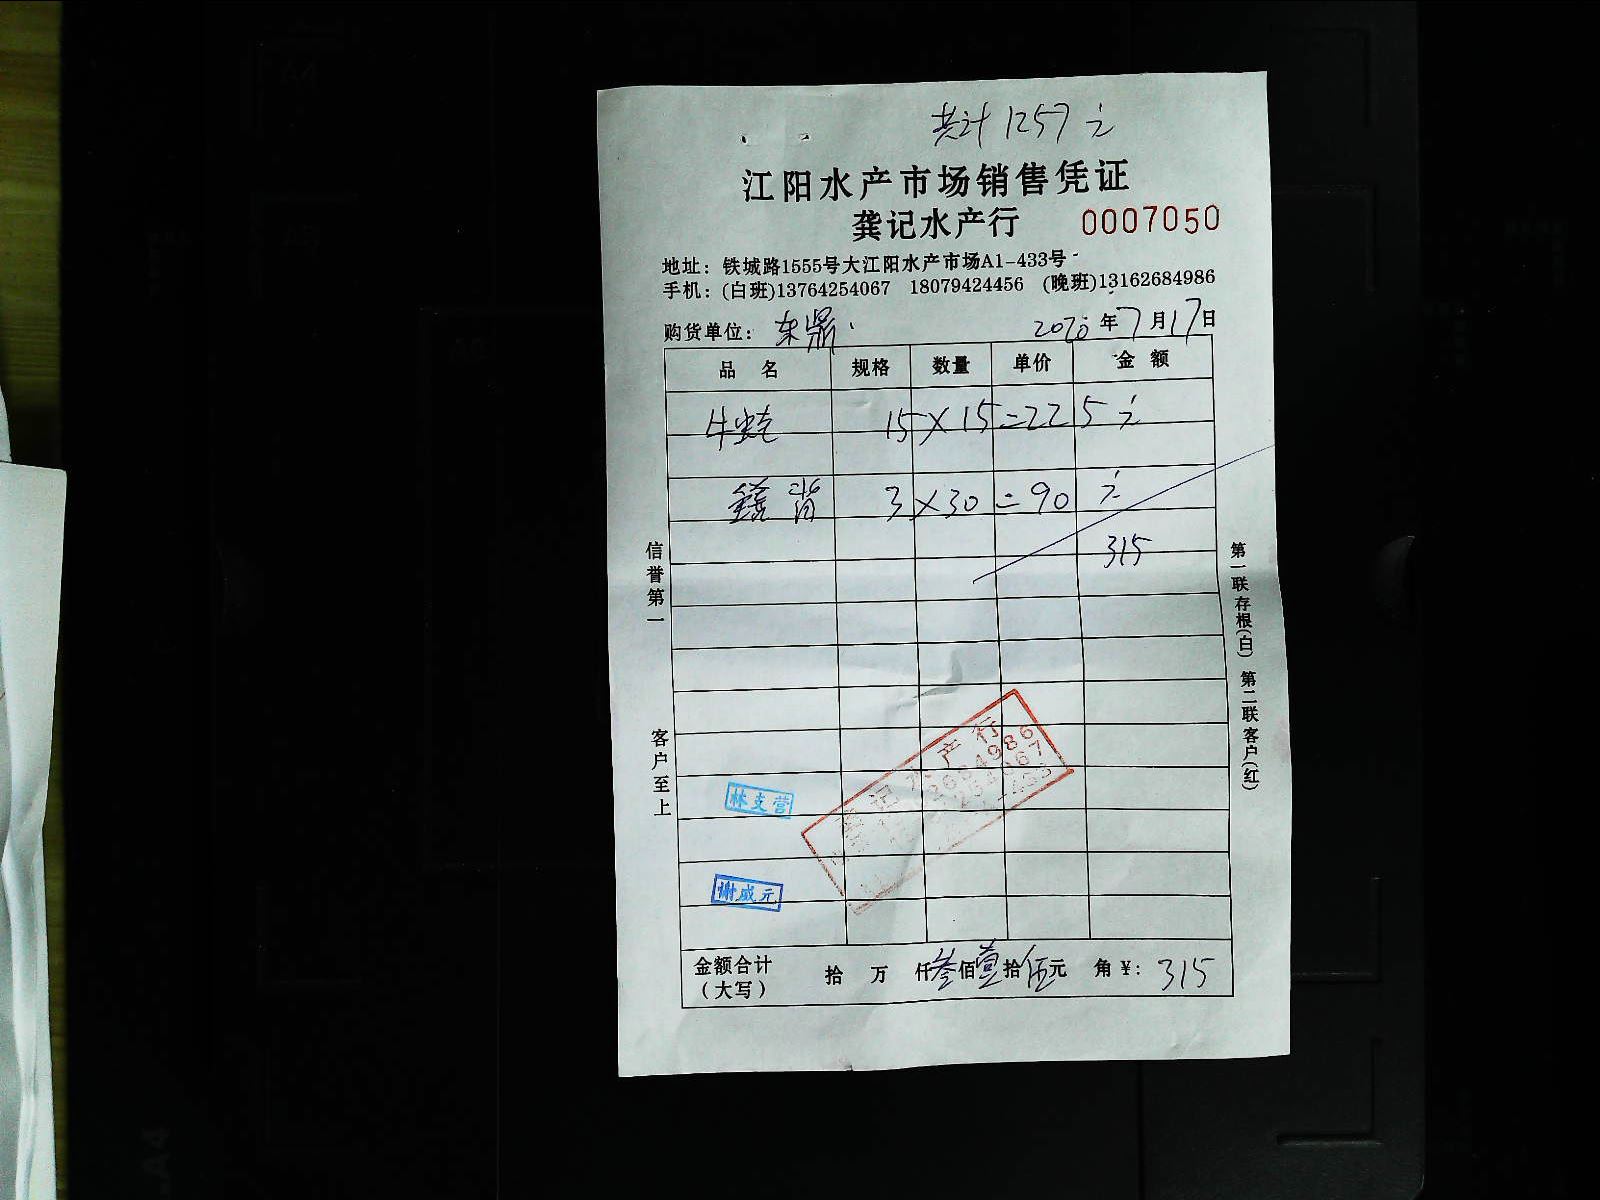 共计1257元
江阳水产市场销售凭证
龚记水产行 0007050
地址：铁城路1555号大江阳水产市场A1-433号
手机：(白班)13764254067 18079424456 (晚班)13162684986
购货单位：东鼎 2020年7月17日
品名 规格 数量 单价 金额
牛蛙 15×15=225元
3×30=90元
315
信誉第一
客户至上
第一联存根(白) 第二联客户(红)
记水产行
林支营
谢成元
金额合计 拾 万 仟叁佰壹拾伍元 角 ¥：315
（大写）